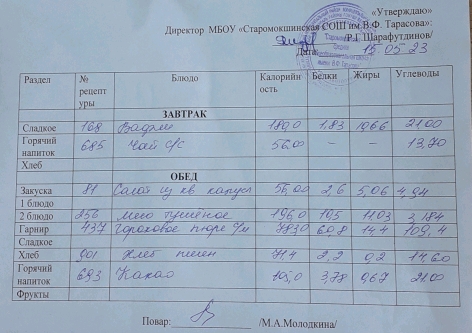 «Утверждаю»
Директор МБОУ «Старомокшинская СОШ им В.Ф. Тарасова»:
/Р.Г.Шарафутдинов/
Дата: 15 05 23
Раздел № рецептуры Блюдо Калорийность Белки Жиры Углеводы
ЗАВТРАК
Сладкое 168 1,83 21,00
Горячий напиток 685 Чай с/с 56,00 – – 13,70
Хлеб
ОБЕД
Закуска 81 Салат из кв капусты 56,00 2,6 5,06 4,94
1 блюдо
2 блюдо 256 Мясо тушёное 196,0 10,5 11,03 3,184
Гарнир 437 Гороховое пюре 60,8 14,4 109,4
Сладкое
Хлеб 901 Хлеб пшен 71,4 2,2 9,2 14,60
Горячий напиток 693 Какао 105,0 3,78 0,67 21,00
Фрукты
Повар: /М.А.Молодкина/